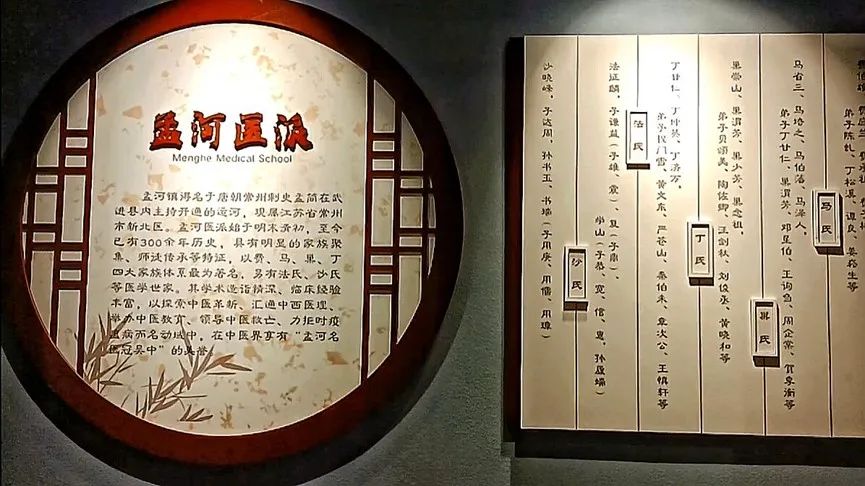 孟河医派
Menghe Medical School
孟河镇得名于唐朝常州刺史孟简在武
进县内主持开通的运河，现属江苏省常州
市新北区。孟河医派始于明末清初，至今
已有300余年历史，具有明显的家族聚
集、师徒传承等特征，以费、马、巢、丁
四大家族体系最为著名，另有法氏、沙氏
等医学世家。其学术造诣精深、临床经验
丰富，以探索中医革新、汇通中西医理、
举办中医教育、领导中医救亡、力拒时疫
温病而名动域中，在中医界享有“孟河名
医冠吴中”的美誉。
马氏
马省三、马培之、马伯藩、马泽人，
弟子丁甘仁、巢渭芳、邓星伯、王询刍、周企棠、贺季衡等
巢氏
巢崇山、巢渭芳、巢少芳、巢念祖，
弟子贝颂美、陶佐卿、王剑秋、刘俊丞、黄晓和等
丁氏
丁甘仁、丁仲英、丁济万，
弟子程门雪、黄文东、严苍山、秦伯未、章次公、王慎轩等
法氏
法征麟，子谦益（子雄、震）、复（子鼎）、
学山（子恭、宽、信、惠，孙盛瑞）
沙氏
沙晓峰，子达周，孙书玉、书瑞（子用庚、用儒、用璋）